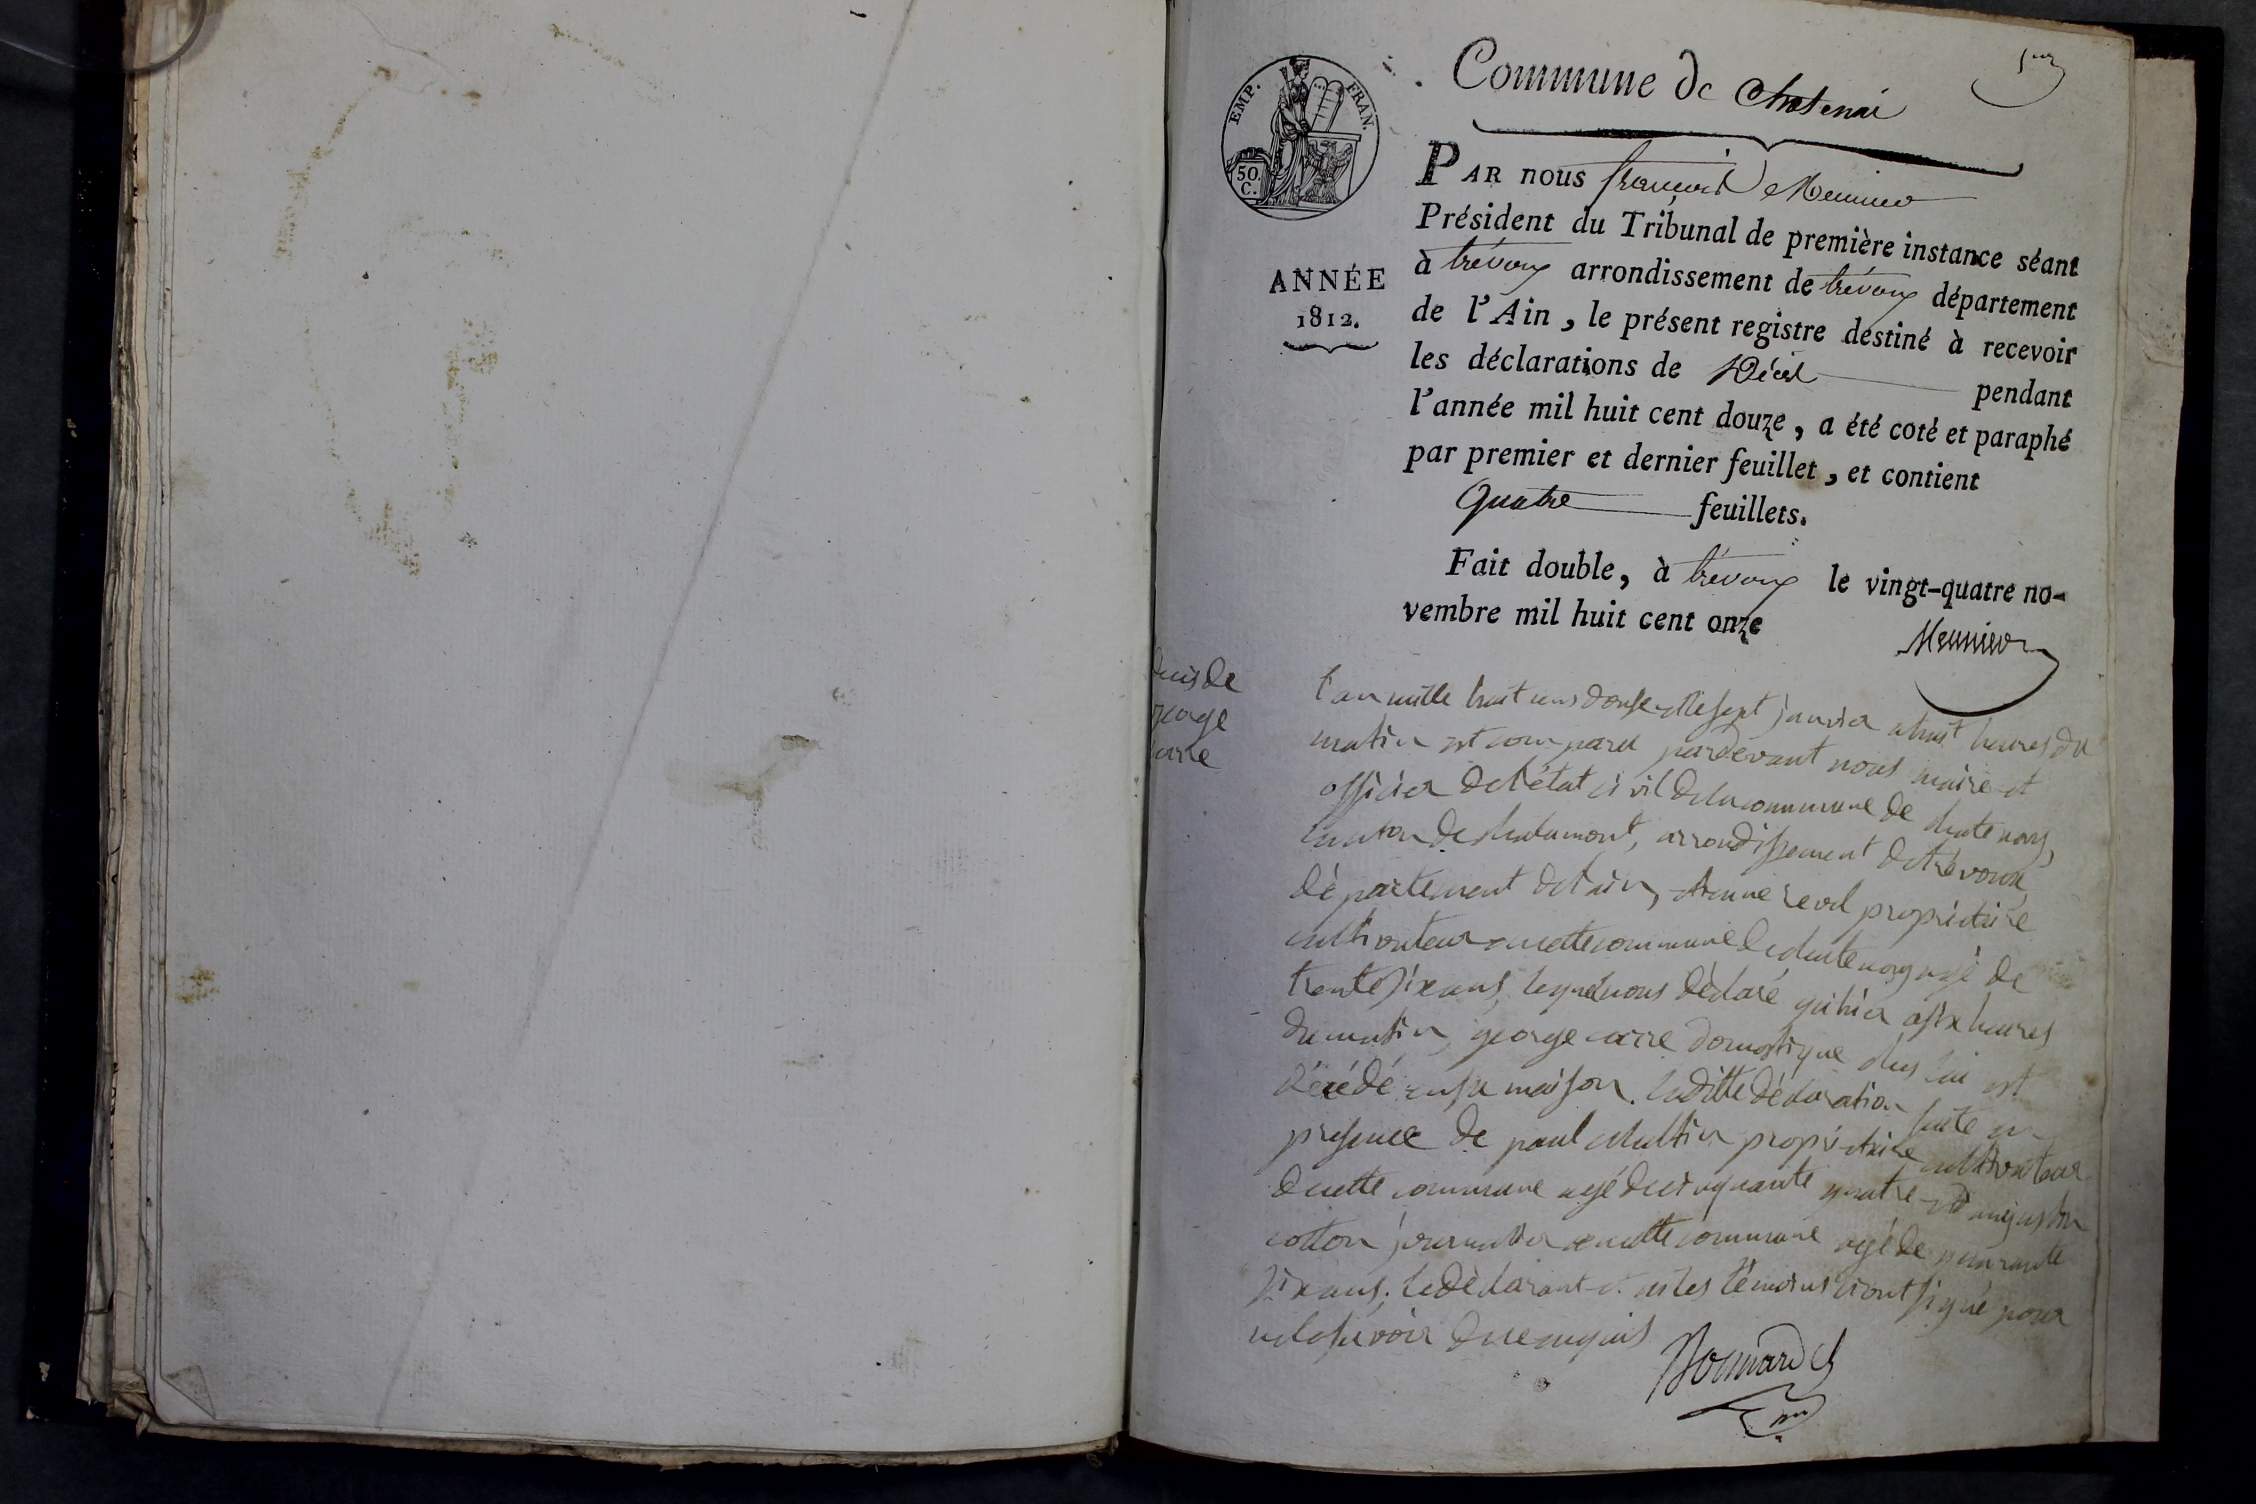 1er
Commune de Chatenai
EMP. FRAN.
50.
C.
ANNÉE
1812.
PAR nous françois Meunier
Président du Tribunal de première instance séant
à trévoux arrondissement de trévoux département
de l'Ain, le présent registre destiné à recevoir
les déclarations de Décès pendant
l'année mil huit cent douze, a été coté et paraphé
par premier et dernier feuillet, et contient
quatre feuillets.
Fait double, à trévoux le vingt-quatre no-
vembre mil huit cent onze
Meunier
de
george
carre
l'an mille huit cens douse et le sept janvier a huit heures du
matin est comparu pardevant nous maire et
officier de l'état civil de la commune de chatenay,
canton de chalamont, arrondissement de trévoux,
département de l'ain, etienne revel propriétaire
cultivateur en cette commune de chatenay agé de
trente six ans, lequel nous déclaré qu'hier a six heures
du matin, george carre domestique ches lui est
décédé en sa maison. laditte déclaration faite en
presence de paul propriétaire cultivateur
de cette commune agé de cinquante quatre et augustin
cotton journallier en cette commune agé de quarante
six ans. le déclarant et les témoins n'ont signé pour
ne le savoir de ce enquis